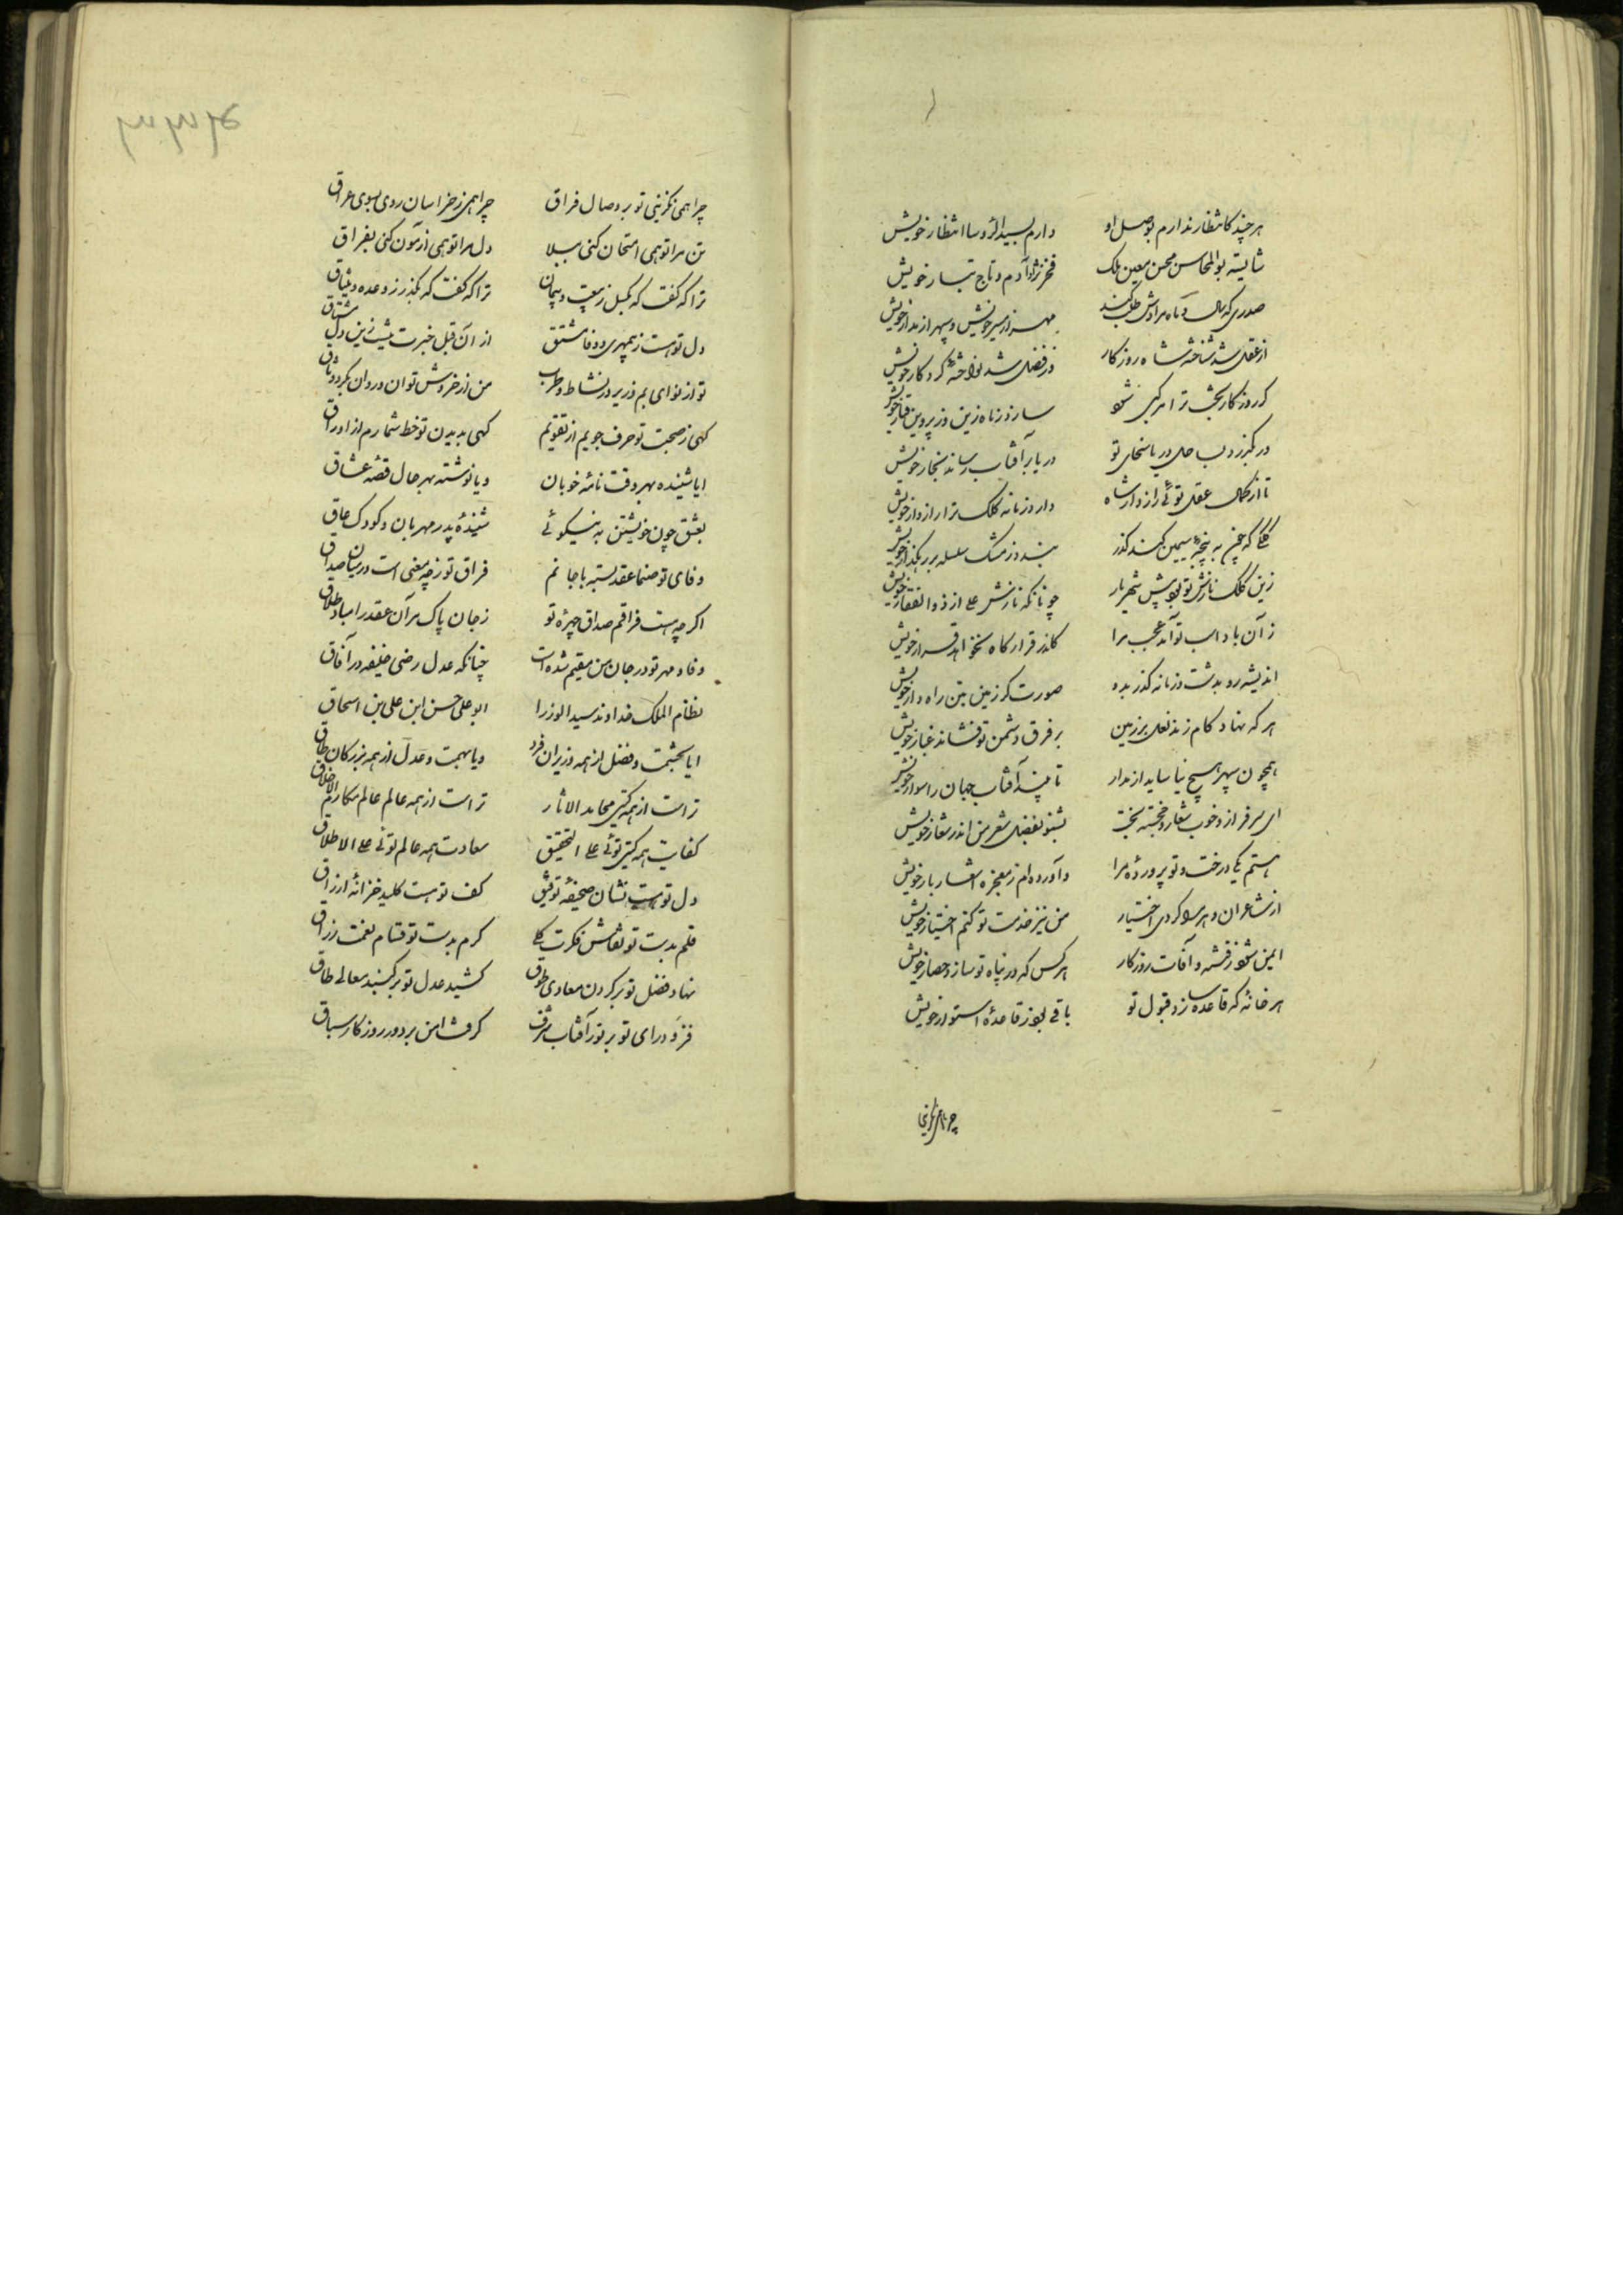 هر چند کانتظار ندارم بوصل او دارم بسید الرؤسا انتظار خویش
شایسته بوالمحاسن محسن معین ملک فخر نژاد آدم و تاج تبار خویش
صدری که سال و ماه مرادش طلب کنند مهر از مسیر خویش و سپهر از مدار خویش
از عقل شد شناختهٔ شاه روزگار وز فضل شد نواختهٔ کردکار خویش
کر روزکار بخت ترا مرکبی شود سازد ز ماه زین و ز پروین فسار خویش
در بگذرد لب حلی دریا سخای تو دریا بر آفتاب رساند بخار خویش
تا از کمال عقل توئی رازدار شاه دارد زمانه کلک ترا رازدار خویش
کلکی که چون به پنجهٔ سیمین کند گذر بندد ز مشک سلسله بر رهگذار خویش
زین کلک نازش تو بود پیش شهریار چونانکه نازش علی از ذوالفقار خویش
زآن باد اسب تو آمد عجب مرا کاندر قرارگاه نخواهد قرار خویش
اندیشه رو بدشت و زمانه گذر بدو صورت گر زمین بتن راه وار خویش
هر که نهاد کام زند نعل بر زمین بر فرق دشمن تو فشاند غبار خویش
همچون سپهر هیچ نیاساید از مدار تا بیند آفتاب جهان را سوار خویش
ای سرفراز و خوب شعار و خجسته بخت بشنو بفضل شعر من اندر شعار خویش
هستم یکی درخت و تو پروردهٔ مرا وآورده‌ام ز معجزه اشعار بار خویش
از شاعران دهر مرا کردی اختیار من نیز خدمت تو کنم اختیار خویش
ایمن شود ز فتنه و آفات روزکار هر کس که در پناه تو سازد حصار خویش
هر خانهٔ که قاعده سازد قبول تو باقی بود ز قاعدهٔ استوار خویش
چرا همی نگزینی
چرا همی نگزینی تو بر وصال فراق چرا همی ز خراسان روی بسوی عراق
تن مرا تو همی امتحان کنی ببلا دل مرا تو همی آزمون کنی بفراق
ترا که گفت که بگسل ز بیعت و پیمان ترا که گفت که بگذر ز وعده و میثاق
دل تو هست ز بیمهری و وفا مشتق از آن قبل خبرت نیست زین دل مشتاق
تو از نوای بم و زیر در نشاط و طرب من از خروش توان و روان بگرد وثاق
گهی ز صحبت تو حرف جویم از تقویم گهی بدیدن تو خط شمارم از اوراق
ایا شنیده بهر وقت نامهٔ خوبان و یا نوشته بهر حال قصهٔ عشاق
بعشق چون خویشتن به نیکوئی شنیدهٔ پدر مهربان و کودک عاق
وفای تو صنما عقد بسته با جانم فراق تو ز چه معنی است در میان صداق
اکر چه هست فراقم صداق چهرهٔ تو ز جان پاک مر آن عقد را مباد طلاق
وفا و مهر تو در جان من مقیم شده است چنانکه عدل رضی خلیفه در آفاق
نظام الملک خداوند سید الوزرا ابو علی حسن ابن علی بن اسحاق
ایا بحشمت و فضل از همه وزیران فرد و یا بهمت و عدل از همه بزرکان طاق
تراست از همه گیتی محامد الآثار تراست از همه عالم مکارم الاخلاق
کفایت همه گیتی توئی علی التحقیق سعادت همه عالم توئی علی الاطلاق
دل تو هست نشان صحیفهٔ توفیق کف تو هست کلید خزانهٔ ارزاق
قلم بدست تو نقاش فکرت کلی کرم بدست تو قسام نعمت رزاق
نهاد فضل تو بر کردن معادی طوق کشید عدل تو بر گنبد معالی طاق
فزود رای تو بر نور آفتاب شرف کرفت امن بر دور روزکار سباق